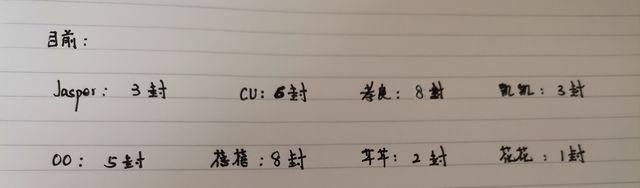 目前：
Jasper：3封 CU：6封 孝良：8封 凯凯：3封
OO：5封 蓓蓓：8封 芊芊：2封 花花：1封